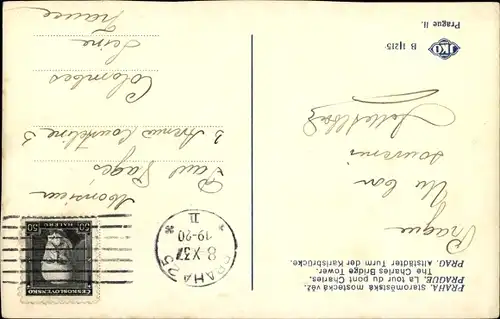 PRAHA. Staroměstská mostecká věž.
PRAGUE. La tour du pont Charles.
The Charles Bridge Tower.
PRAG. Altstädter Turm der Karlsbrücke.
Prague
Un bon
souvenir
Monsieur
Paul Pagès
2 Avenue
2
Colombes
Seine
France
50 HALÉŘŮ 50
ČESKOSLOVENSKO
PRAHA 25
8.X.37
19-20
II
B 11215
Prague II.